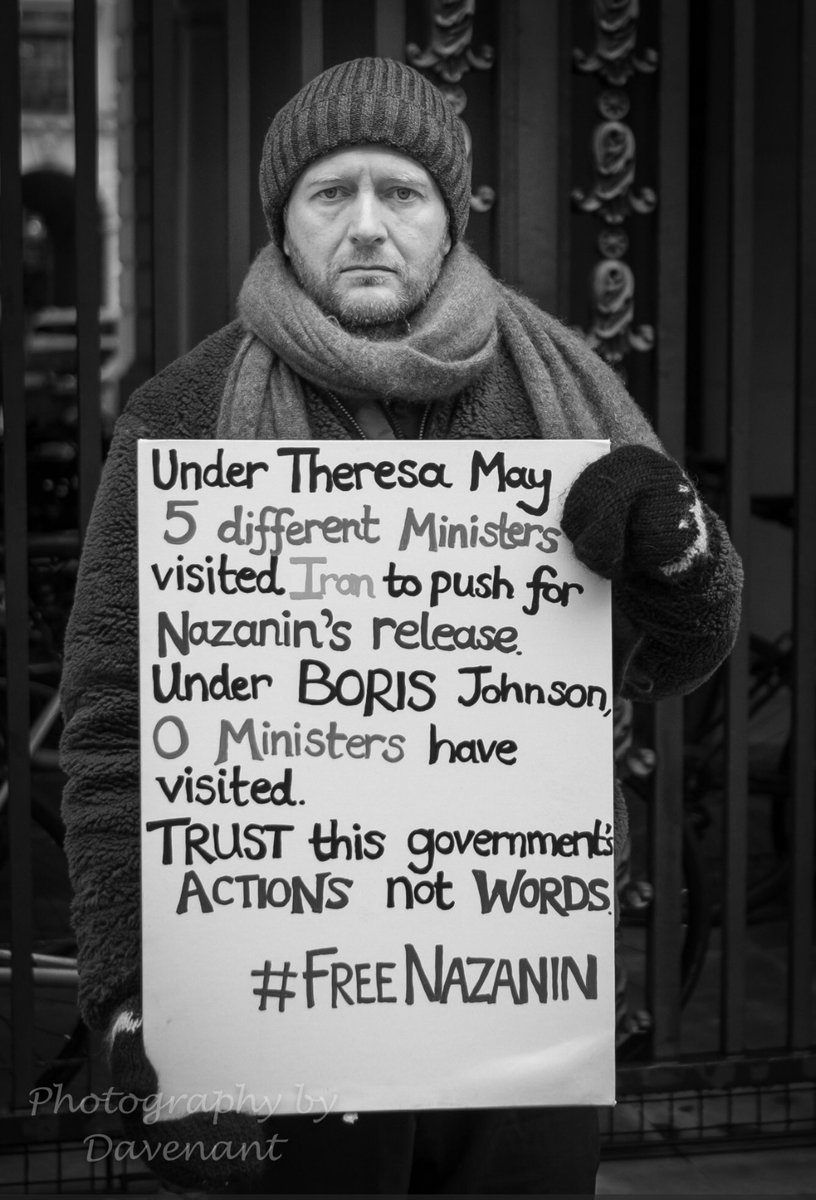 Under Theresa May
5 different Ministers
visited Iran to push for
Nazanin's release.
Under BORIS Johnson,
0 Ministers have
visited.
TRUST this government's
ACTIONS not WORDS.
#FREENAZANIN
Photography by
Davenant